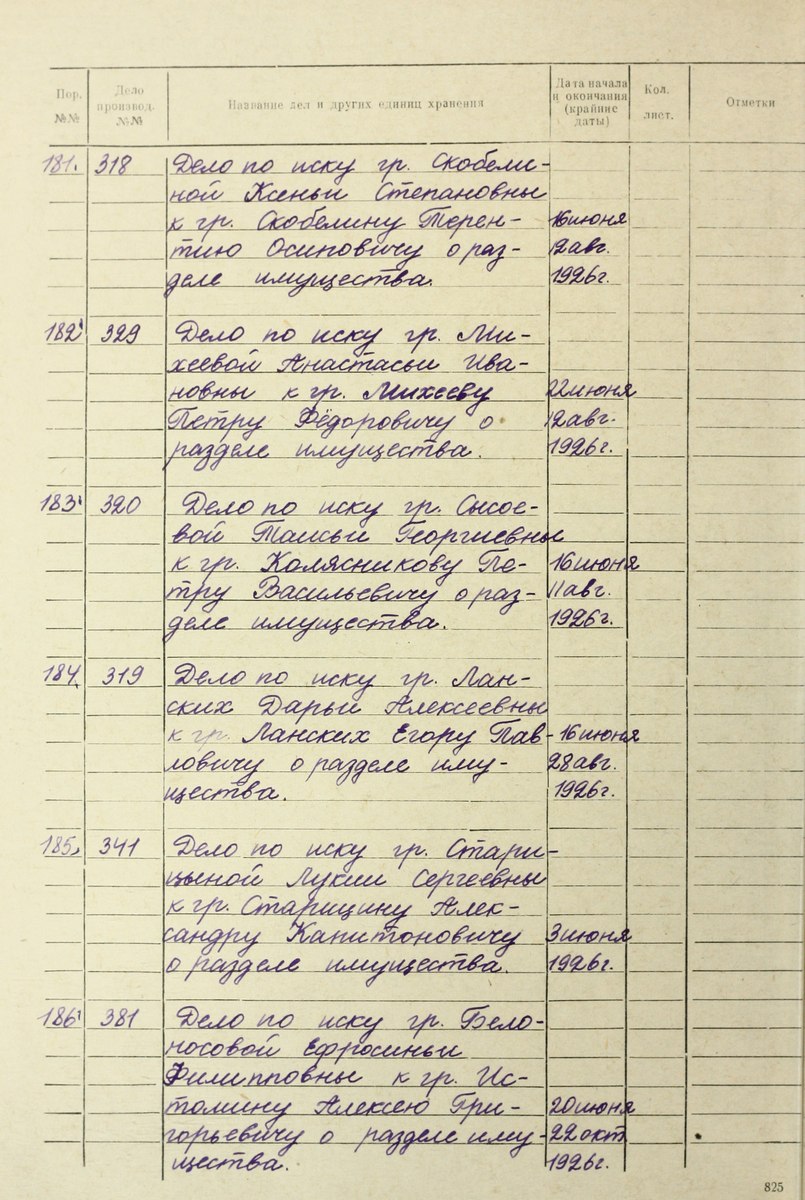 Пор. №№ Дело производ. №№ Название дел и других единиц хранения Дата начала и окончания (крайние даты) Кол. лист. Отметки
181. 318 Дело по иску гр. Скобели-
ной Ксеньи Степановны
к гр. Скобелину Терен- 16 июня
тию Осиповичу о раз- 12 авг.
деле имущества. 1926 г.
182 329 Дело по иску гр. Ми-
хеевой Анастасьи Ива-
новны к гр. Михееву 22 июня
Петру Фёдоровичу о 12 авг.
разделе имущества. 1926 г.
183 320 Дело по иску гр. Сысое-
вой Таисьи Георгиевны
к гр. Колясникову Пе- 16 июня
тру Васильевичу о раз- 11 авг.
деле имущества. 1926 г.
184. 319 Дело по иску гр. Лан-
ских Дарьи Алексеевны
к гр. Ланских Егору Пав- 16 июня
ловичу о разделе иму- 28 авг.
щества. 1926 г.
185. 341 Дело по иску гр. Стари-
цыной Лукии Сергеевны
к гр. Старицину Алек-
сандру Капитоновичу 3 июня
о разделе имущества. 1926 г.
186 381 Дело по иску гр. Бело-
носовой Ефросиньи
Филипповны к гр. Ис-
томину Алексею Гри- 20 июня
горьевичу о разделе иму- 22 окт
щества. 1926 г.
825